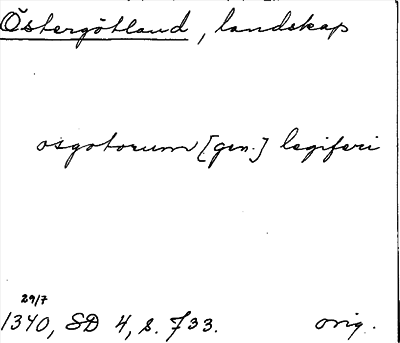 Östergötland, landskap
osgotorum [gen.] legiferi
29/7
1340, SD 4, s. 733. orig.